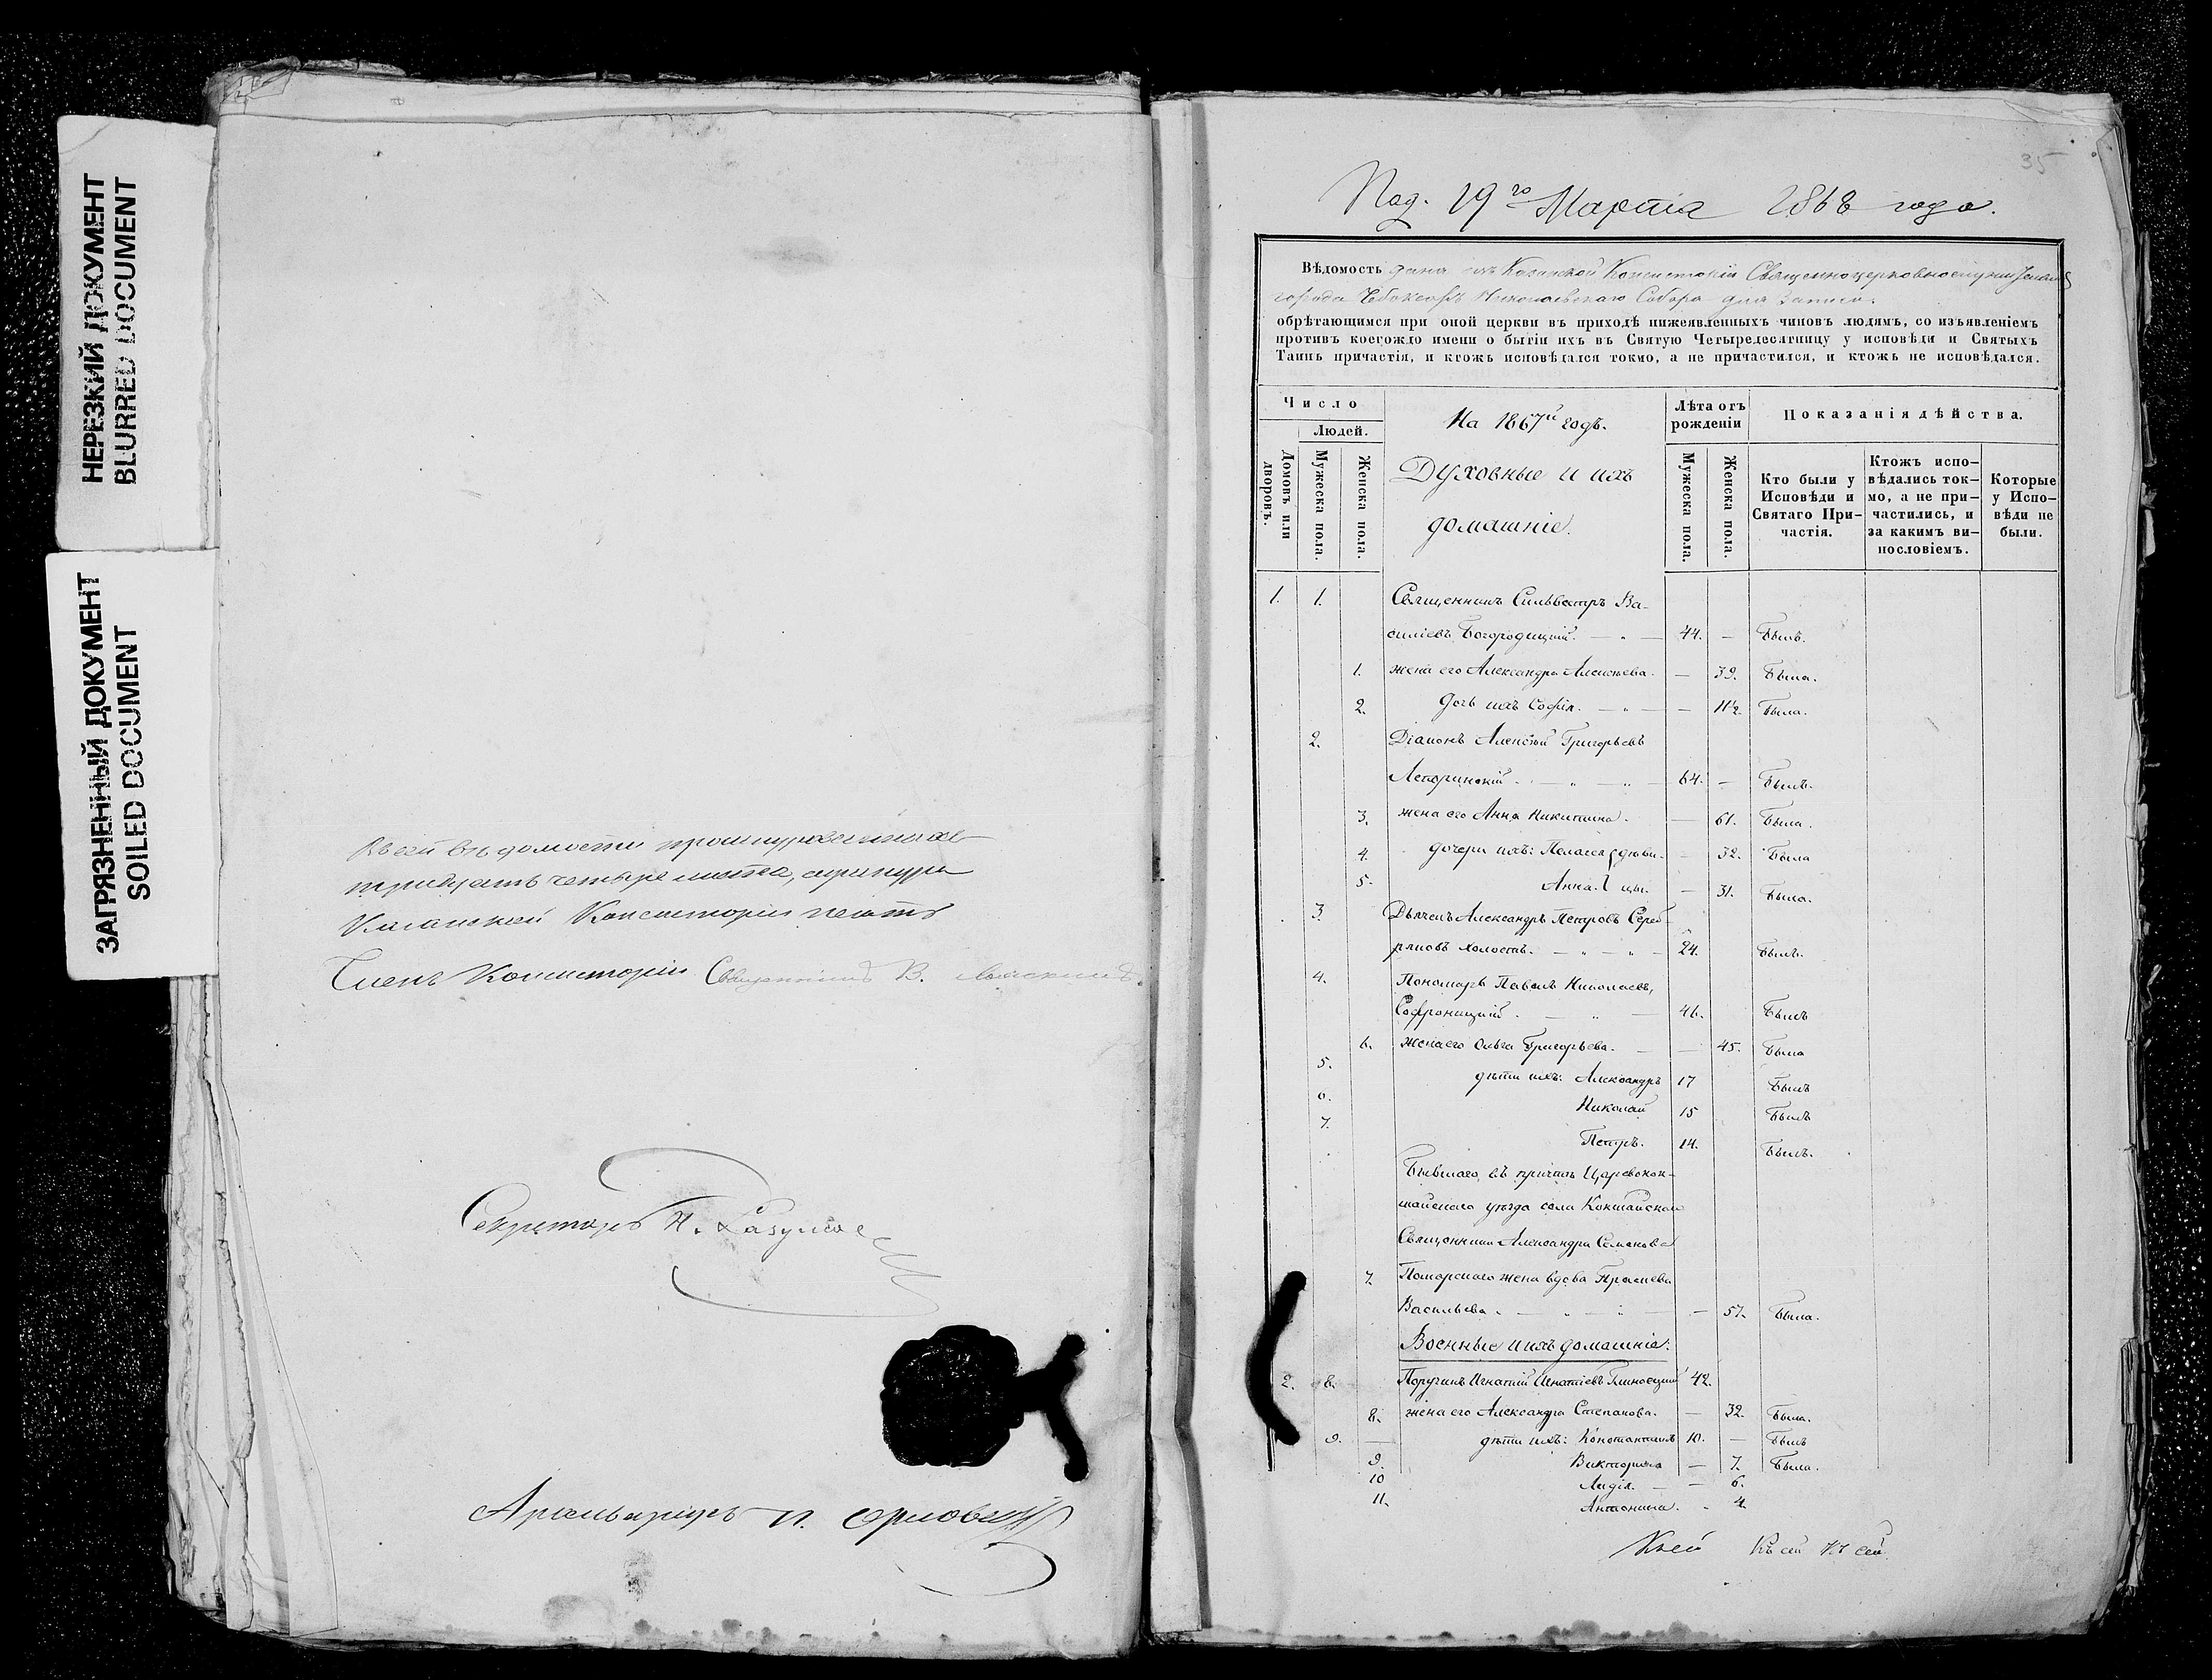 НЕРЕЗКИЙ ДОКУМЕНТ
BLURRED DOCUMENT
ЗАГРЯЗНЕННЫЙ ДОКУМЕНТ
SOILED DOCUMENT
Въ сей вѣдомости прошнурованныхъ
тридцать четыре листа, шнуръ
Казанской Консисторіи печать
Членъ Консисторіи Священникъ В.
Секретарь Н. Разумов
Архиваріусъ П. Орловскій
35
Под. 19го Марта 1868 года.
Вѣдомость дана изъ Казанской Консисторіи Священноцерковнослужителямъ
города Чебоксаръ Николаевскаго Собора для записи.
обрѣтающимся при оной церкви въ приходѣ нижеявленныхъ чиновъ людямъ, со изъявленіемъ
противъ коегождо имени о бытіи ихъ въ Святую Четыредесятницу у исповѣди и Святыхъ
Таинъ причастія, и ктожъ исповѣдался токмо, а не причастился, и ктожъ не исповѣдался.
Число
Людей.
Домовъ или дворовъ.
Мужеска пола.
Женска пола.
На 1867й годъ.
Духовные и ихъ
домашніе.
Лѣта отъ рожденіи
Мужеска пола.
Женска пола.
Показанія дѣйства.
Кто были у Исповѣди и Святаго Причастія.
Ктожъ исповѣдались токмо, а не причастились, и за какимъ винословіемъ.
Которые у Исповѣди не были.
1. 1. Священникъ Сильвестръ Ва-
силіевъ Богородицкій. — " — 44. — Былъ.
1. жена его Александра Алексѣева. — 39. Была.
2. дочь ихъ Софія. — " — — 11½. Была.
2. Діаконъ Алексѣй Григорьевъ
Асторинскій. — " — " — 64. — Былъ.
3. жена его Анна Никитина. — 61. Была.
4. дочери ихъ: Пелагея { дѣви- — 32. Была
5. Анна. { цы. — 31. Была.
3. Дьячекъ Александръ Петровъ Сереб-
ряковъ холостъ. — " — " — 24. Былъ.
4. Пономарь Павелъ Николаевъ,
Софроницкій. — " — 46. Былъ
6. жена его Ольга Григорьева. — — 45. Была
5. дѣти ихъ: Александръ 17 Былъ
6. Николай 15 Былъ
7. Петръ. 14. Былъ.
Бывшаго въ причтѣ Царевокок-
шайскаго уѣзда села Кокшайска
Священника Александра Семенова
7. Поморскаго жена вдова Прасковья
Васильева. — " — " — — 57. Была.
Военные и ихъ домашніе.
2. 8. Поручикъ Игнатій Игнатіевъ Глинецкій 42.
8. жена его Александра Степанова. — 32. Была.
9. — дѣти ихъ: Константинъ 10. — Былъ
9. Викторина — 7. Была.
10 Лидія. — — 6.
11. Антонина. - 4.
Къ сей Къ сей Къ сей